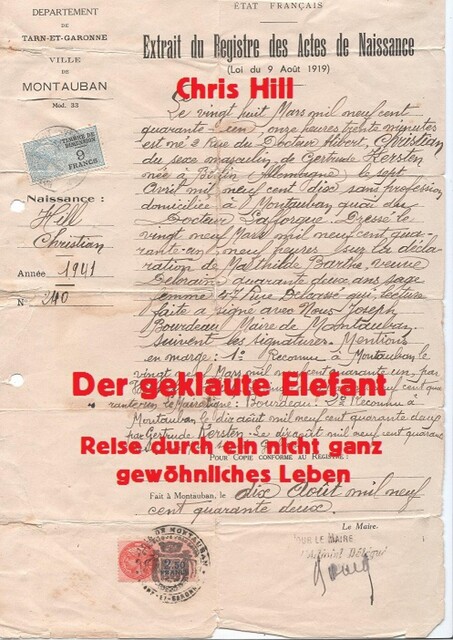 DEPARTEMENT
DE
TARN-ET-GARONNE
VILLE
DE
MONTAUBAN
Mod. 33
ÉTAT FRANÇAIS
Extrait du Registre des Actes de Naissance
(Loi du 9 Août 1919)
Chris Hill
TIMBRE DE DIMENSION
9 FRANCS
Naissance :
Hill
Christian
Année 1941
N° 240
Le vingt huit Mars mil neuf cent
quarante-un, onze heures trente minutes
est né 2 Rue du Docteur Alibert, Christian
du sexe masculin, de Gertrude Kersten
née à Berlin (Allemagne) le sept
Avril mil neuf cent dix sans profession
domiciliée à Montauban quai du
Docteur Laforgue. Dressé le
vingt neuf Mars mil neuf cent qua-
rante-un, neuf heures sur la décla-
ration de Mathilde Barthe, veuve
Delorain quarante deux ans sage
femme rue Delassé qui, lecture
faite a signé avec Nous Joseph
Bourdeau Maire de Montauban.
Suivent les signatures. Mentions
en marge : 1° Reconnu à Montauban le
vingt neuf Mars mil neuf cent quarante-un par
Der geklaute Elefant
rante-un le Maire signé : Bourdeau. 2° Reconnu à
Montauban le dix août mil neuf cent quarante deux
par Gertrude Kersten. Le dix août mil neuf cent quarante
Reise durch ein nicht ganz
gewöhnliches Leben
POUR COPIE CONFORME AU REGISTRE :
Fait à Montauban, le dix Août mil neuf
cent quarante deux.
Le Maire,
POUR LE MAIRE
L'Adjoint Délégué
DE MONTAUBAN
2,50